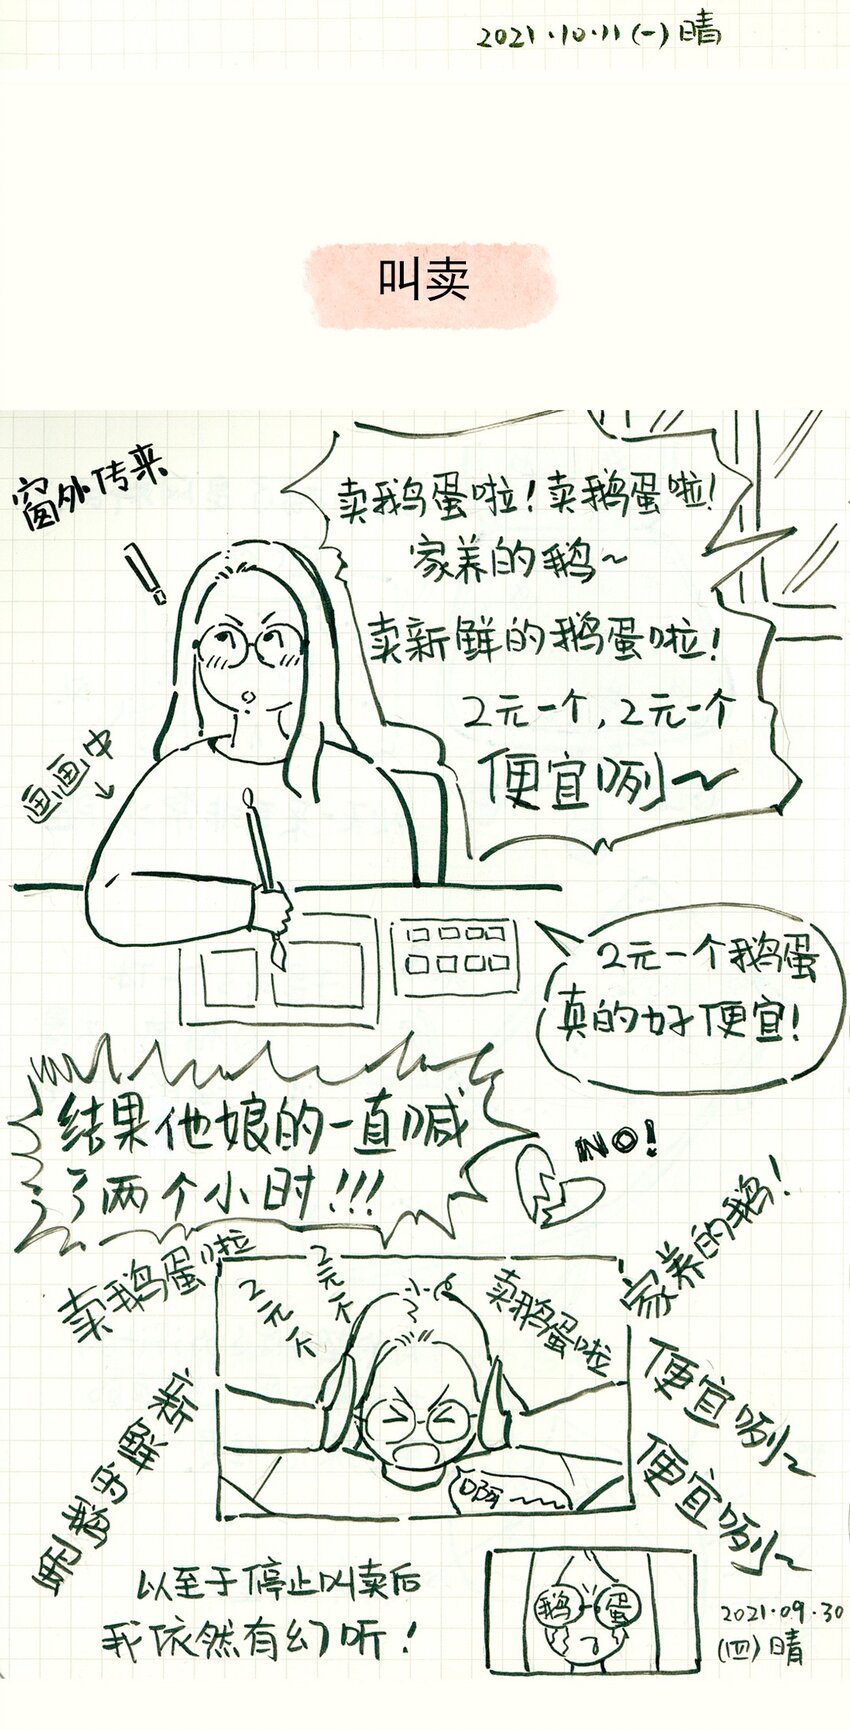 2021.10.11(一)晴
叫卖
窗外传来
卖鹅蛋啦!卖鹅蛋啦!
家养的鹅~
卖新鲜的鹅蛋啦!
2元一个,2元一个
便宜咧~
画画中
2元一个鹅蛋
真的好便宜!
结果他娘的一直喊
了两个小时!!!
NO!
卖鹅蛋啦
2元一个
2元一个
卖鹅蛋啦
家养的鹅!
便宜咧~
便宜咧~
新鲜的鹅蛋
啊~~
以至于停止叫卖后
我依然有幻听!
鹅蛋
2021.09.30
(四)晴